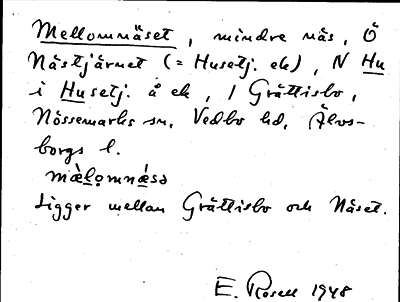 Mellomnäset, mindre näs, Ö
Nästjärnet (= Husetj. ek), N Hu
i Husetj. å ek, 1 Grättisbo,
Nössemarks sn, Vedbo hd, Älvs-
borgs l.
mæ̀lo̜mnǽsə
Ligger mellan Grättisbo och Näset.
E. Rosell 1948